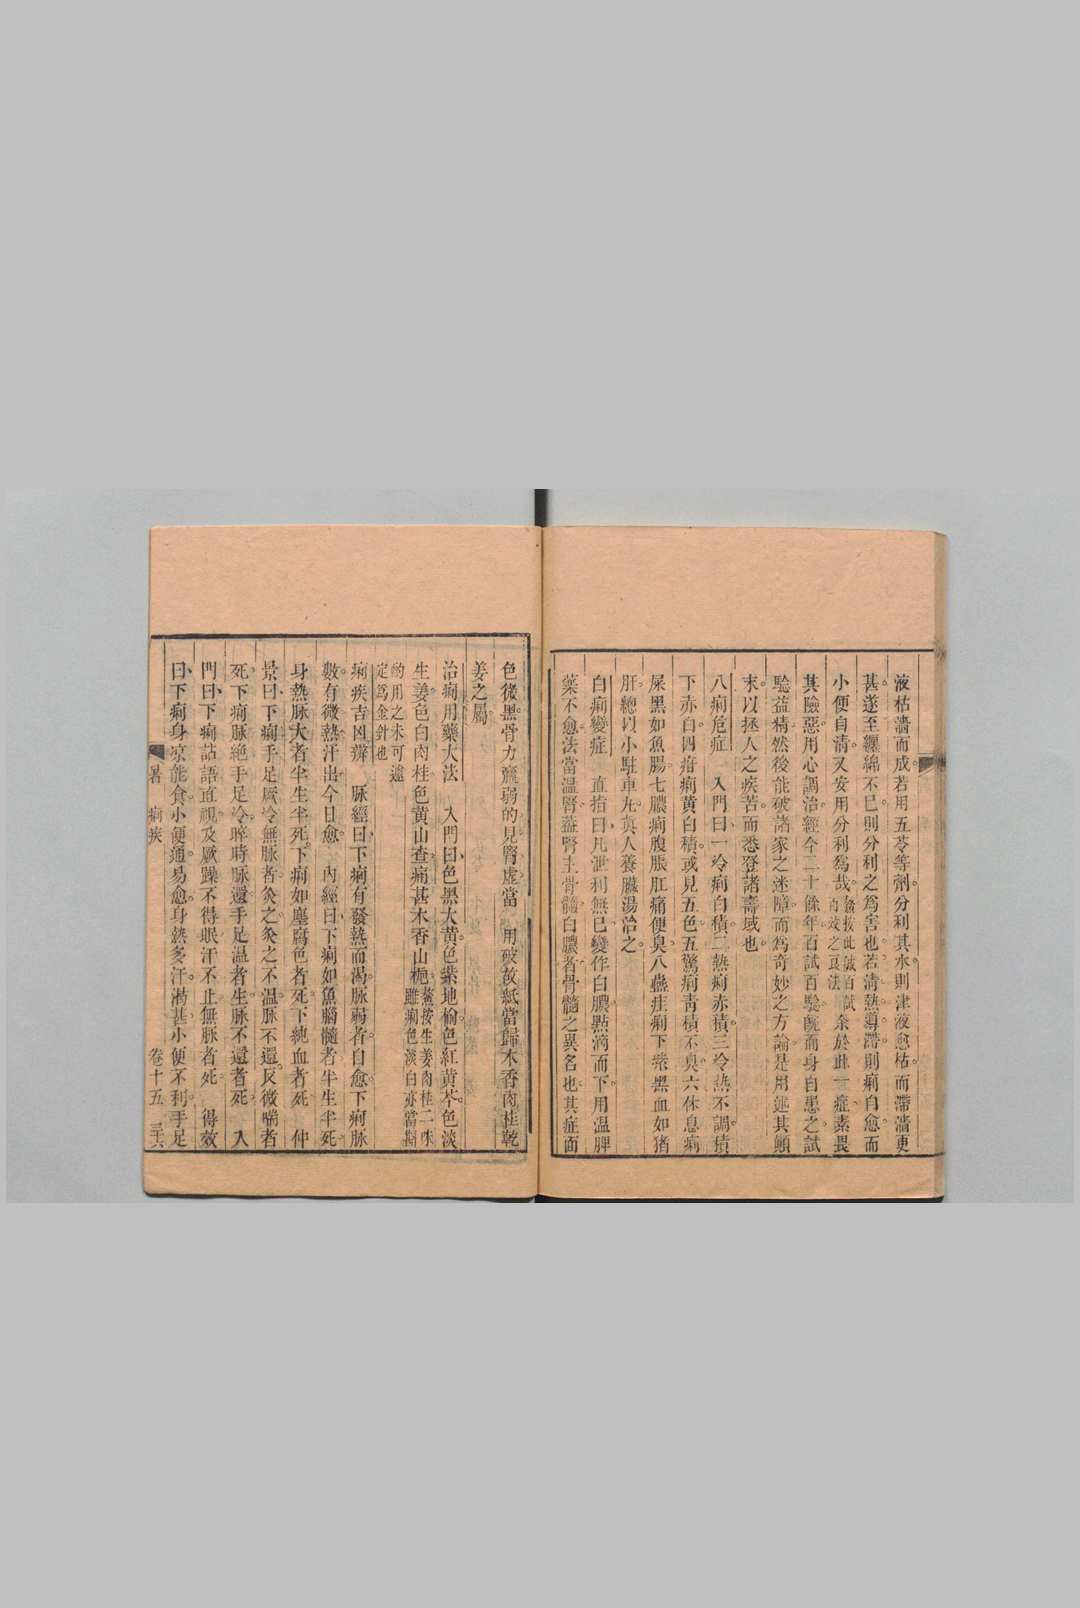 液枯濇而成若用五苓等劑分利其水則津液愈枯而帶濇更
甚遂至纒綿不已則分利之爲害也若清熱導滯則痢自愈而
小便自清又安用分利爲哉鰲按此誠百試百效之良法余於此一症素畏
其險惡用心調治經今二十餘年百試百驗旣而身自患之試
驗益精然後能破諸家之迷障而爲奇妙之方論是用述其顚
末以拯人之疾苦而悉登諸壽域也
八痢危症　入門曰一冷痢白積二熱痢赤積三冷熱不調積
下赤白四疳痢黃白積或見五色五驚痢靑積不臭六休息痢
屎黑如魚腸七膿痢腹脹肛痛便臭八蠱疰痢下紫黑血如猪
肝總以小駐車丸眞人養臟湯治之
白痢變症　直指曰凡泄利無已變作白膿點滴而下用温脾
藥不愈法當温腎葢腎主骨髓白膿者骨髓之異名也其症面
色後黑骨力羸弱的見腎虛當　用破故紙當歸木香肉桂乾
姜之屬
治痢用藥大法　入門曰色黑大黄色紫地榆色紅黃芩色淡
生姜色白肉桂色黃山查痛甚木香山梔鰲按生姜肉桂二味雖痢色淡白亦當斟
酌用之未可遽定爲金針也
痢疾吉凶辨　脉經曰下痢有發熱而渴脉弱者自愈下痢脉
數有微熱汗出今日愈　內經曰下痢如魚腦髓者半生半死
身熱脉大者半生半死下痢如塵腐色者死下純血者死　仲
景曰下痢手足厥冷無脉者灸之灸之不温脉不還反微喘者
死下痢脉絶手足冷晬時脉還手足温者生脉不還者死　入
門曰下痢譫語直視及厥躁不得眠汗不止無脉者死　得效
曰下痢身凉能食小便通易愈身熱多汗渴甚小便不利手足
暑　痢疾　卷十五　三六